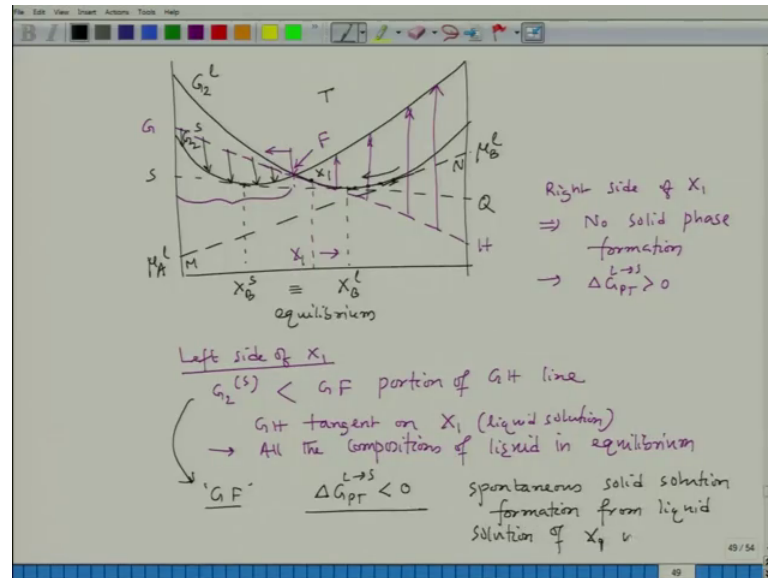 File Edit View Insert Actions Tools Help
B I
G₂ˡ
T
G
G₂ˢ
F
S
X₁
N
μ_Bˡ
Q
H
μ_Aˡ
M
X₁ →
X_Bˢ ≡ X_Bˡ
equilibrium
Right side of X₁
⇒ No solid phase
formation
→ ΔG_PT^(L→S) > 0
Left side of X₁
G₂^(S) < GF portion of GH line
GH tangent on X₁ (liquid solution)
→ All the compositions of liquid in equilibrium
'GF' ΔG_PT^(L→S) < 0 spontaneous solid solution
formation from liquid
solution of
49 / 54
49